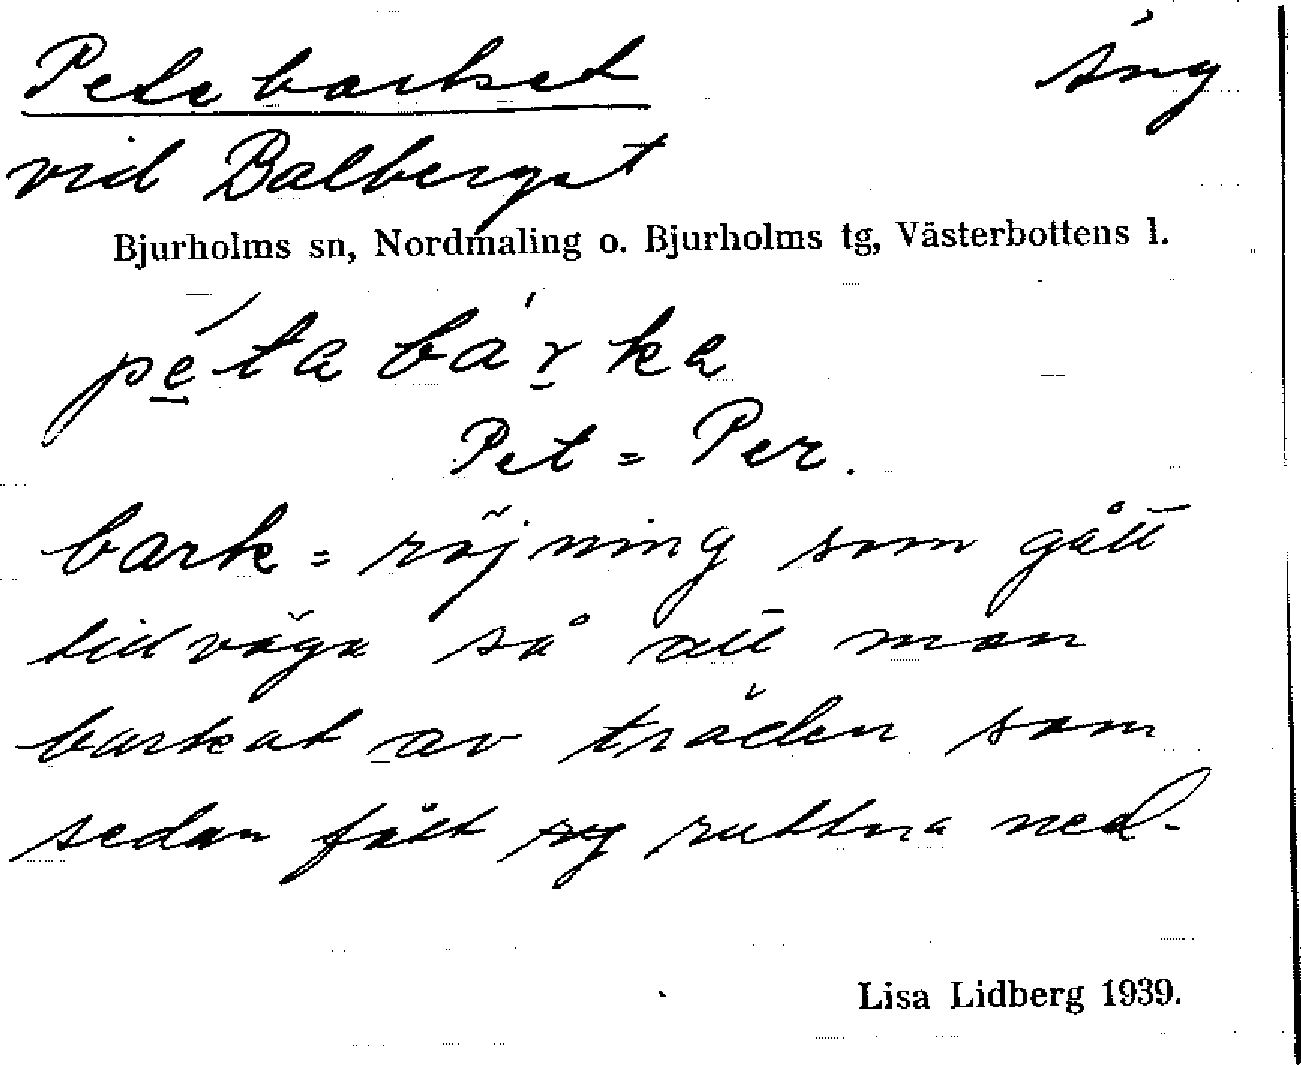 Petebarket äng
vid Balberget
Bjurholms sn, Nordmaling o. Bjurholms tg, Västerbottens l.
pétabárka
Pet = Per.
bark = röjning som gått
tillväga så att man
barkat av träden som
sedan fått ruttna ned.
Lisa Lidberg 1939.